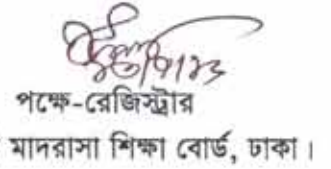 পক্ষে-রেজিস্ট্রার
মাদরাসা শিক্ষা বোর্ড, ঢাকা।